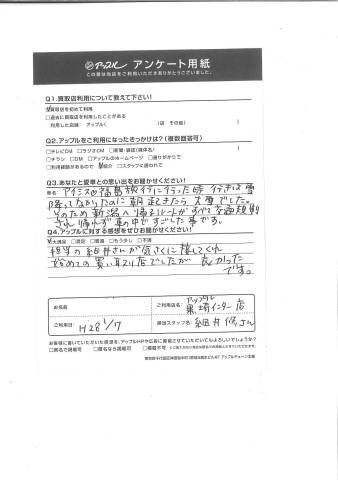 アップル アンケート用紙
この度は当店をご利用いただきありがとうございました。
Q1.買取店利用について教えて下さい!
☑買取店を初めて利用
□過去に買取店を利用したことがある
利用した店舗: アップル( )店 その他( )
Q2.アップルをご利用になったきっかけは?(複数回答可)
□テレビCM □ラジオCM □新聞・雑誌(媒体名/ )
□チラシ □DM □アップルのホームページ □通りがかりで
□利用経験があるので ☑紹介 □スタッフに誘われて
Q3.あなたと愛車との思い出をお聞かせください!
車名: アイシスで福島旅行に行った時 行きは雪
降ってなかったのに朝起きたら大雪でした。
そのため新潟へ帰るルートがすべて交通規制
され 帰れず車の中ですごした事です。
Q4.アップルに対する感想をぜひお聞かせください!
☑大満足 □満足 □普通 □もう少し □不満
担当の細井さんが気さくに接してくれ
始めての買い取り店でしたが良かった
です。
お名前
ご利用店名: アップル 黒埼インター店
ご利用日 H28 1/17
担当スタッフ名: 細井 修さん
お客様に書いていただいた感想を、アップルHPや広告に掲載させていただいてもよろしいでしょうか?
□実名で掲載可 □匿名なら掲載可 □掲載不可